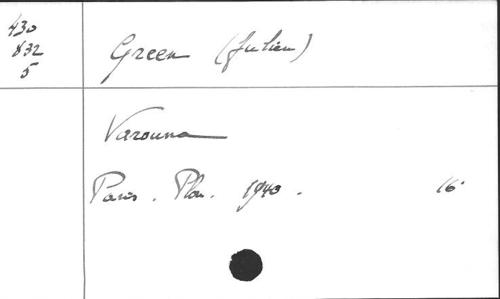 430
832
5
Green (Julien)
Varouna
Paris. Plon. 1940.
16°